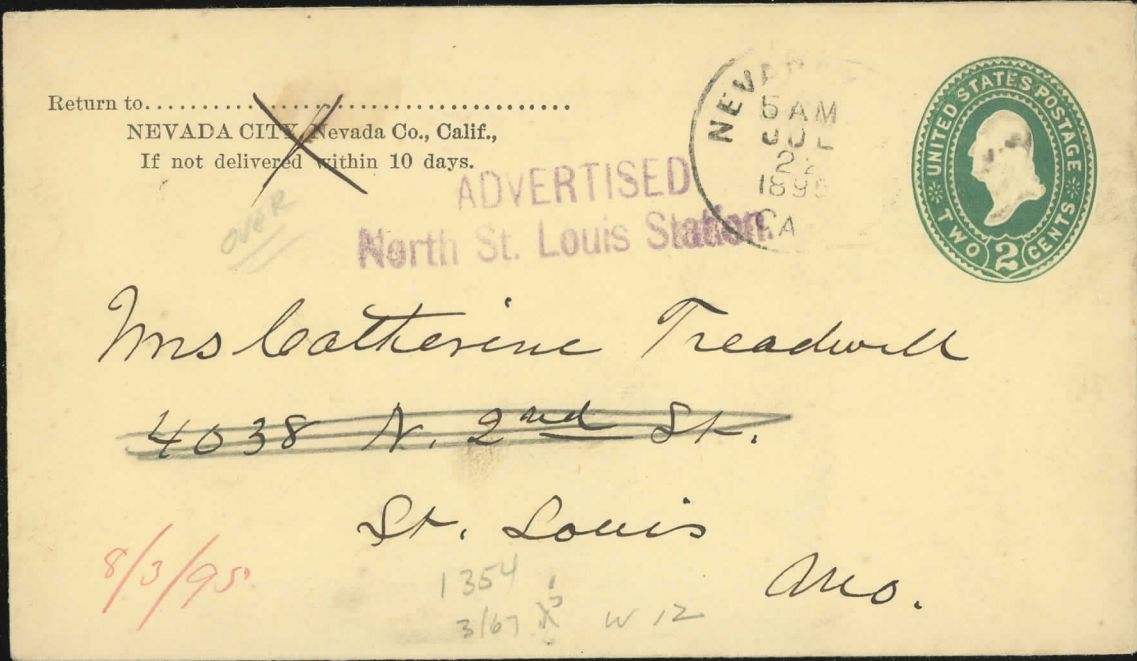 Return to........................................
NEVADA CITY, Nevada Co., Calif.,
If not delivered within 10 days.
OVER
ADVERTISED
North St. Louis Station.
NEVADA
5 AM
JUL
22
1895
CA
UNITED STATES POSTAGE
TWO 2 CENTS
Mrs Catherine Treadwell
4038 N. 2nd St.
St. Louis
Mo.
8/3/95
1354
3/67
W 12